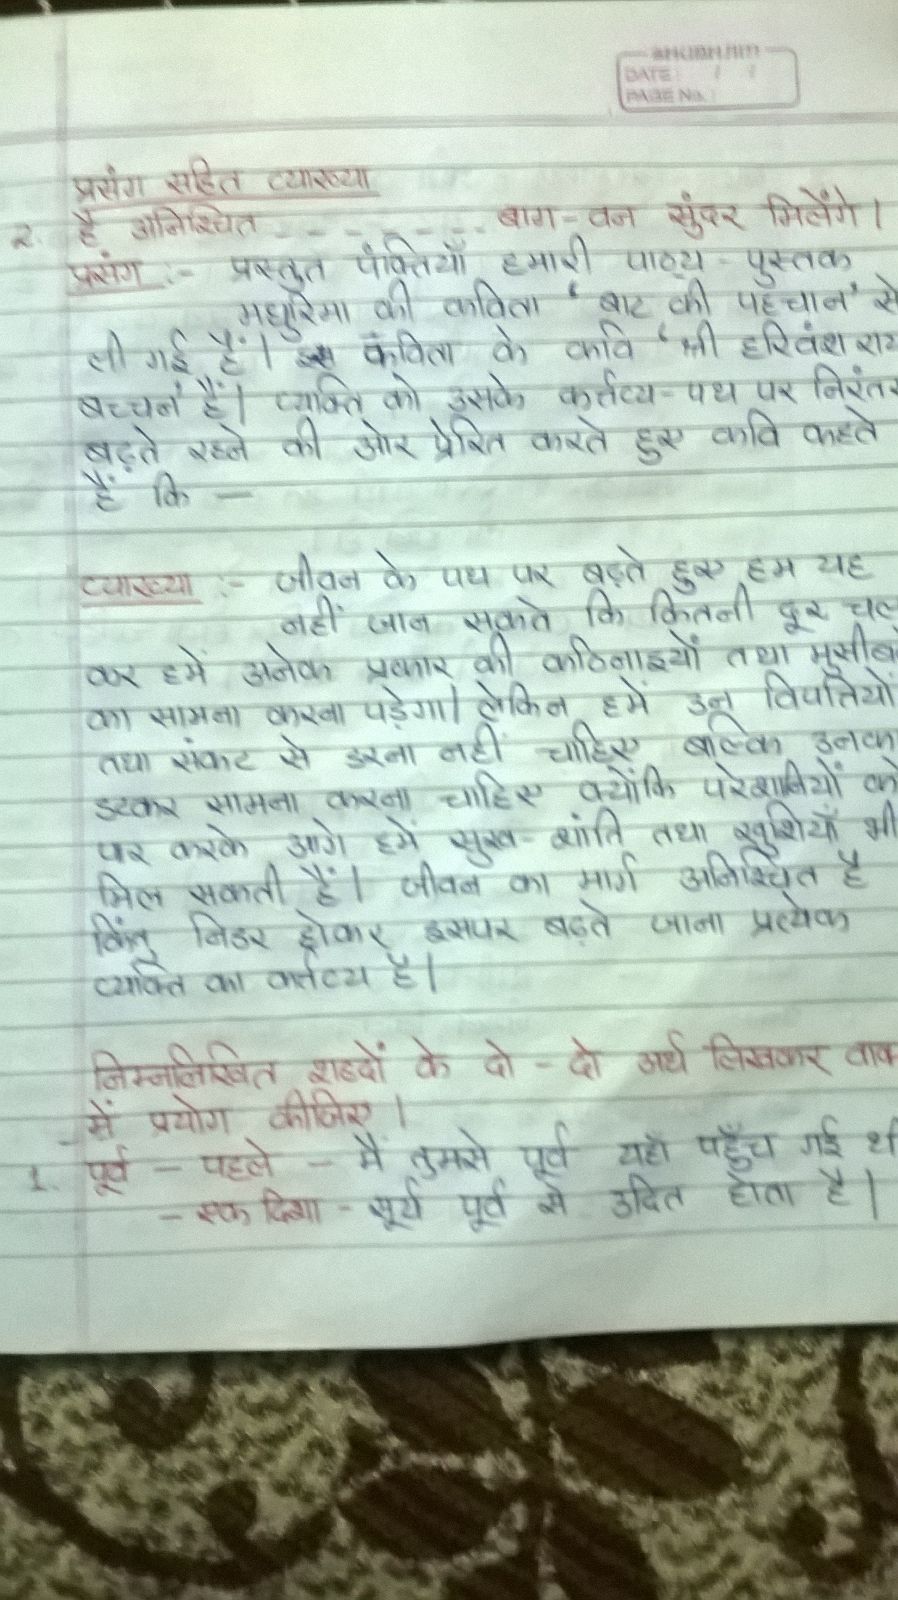 SHUBHAM
DATE: / /
PAGE No.:
प्रसंग सहित व्याख्या
2. है अनिश्चित - - - - - - - बाग-वन सुंदर मिलेंगे।
प्रसंग :- प्रस्तुत पंक्तियाँ हमारी पाठ्य-पुस्तक
मधुरिमा की कविता 'बाट की पहचान' से
ली गई हैं। इस कविता के कवि 'श्री हरिवंश राय
बच्चन' हैं। व्यक्ति को उसके कर्तव्य-पथ पर निरंतर
बढ़ते रहने की ओर प्रेरित करते हुए कवि कहते
हैं कि —
व्याख्या :- जीवन के पथ पर बढ़ते हुए हम यह
नहीं जान सकते कि कितनी दूर चल
कर हमें अनेक प्रकार की कठिनाइयों तथा मुसीब
का सामना करना पड़ेगा। लेकिन हमें उन विपत्तियों
तथा संकट से डरना नहीं चाहिए बल्कि उनक
डटकर सामना करना चाहिए क्योंकि परेशानियों को
पार करके आगे हमें सुख-शांति तथा खुशियाँ भी
मिल सकती हैं। जीवन का मार्ग अनिश्चित है
किंतु निडर होकर इसपर बढ़ते जाना प्रत्येक
व्यक्ति का कर्तव्य है।
निम्नलिखित शब्दों के दो-दो अर्थ लिखकर वाक
में प्रयोग कीजिए।
1. पूर्व - पहले - मैं तुमसे पूर्व यहाँ पहुँच गई थी
- एक दिशा - सूर्य पूर्व से उदित होता है।